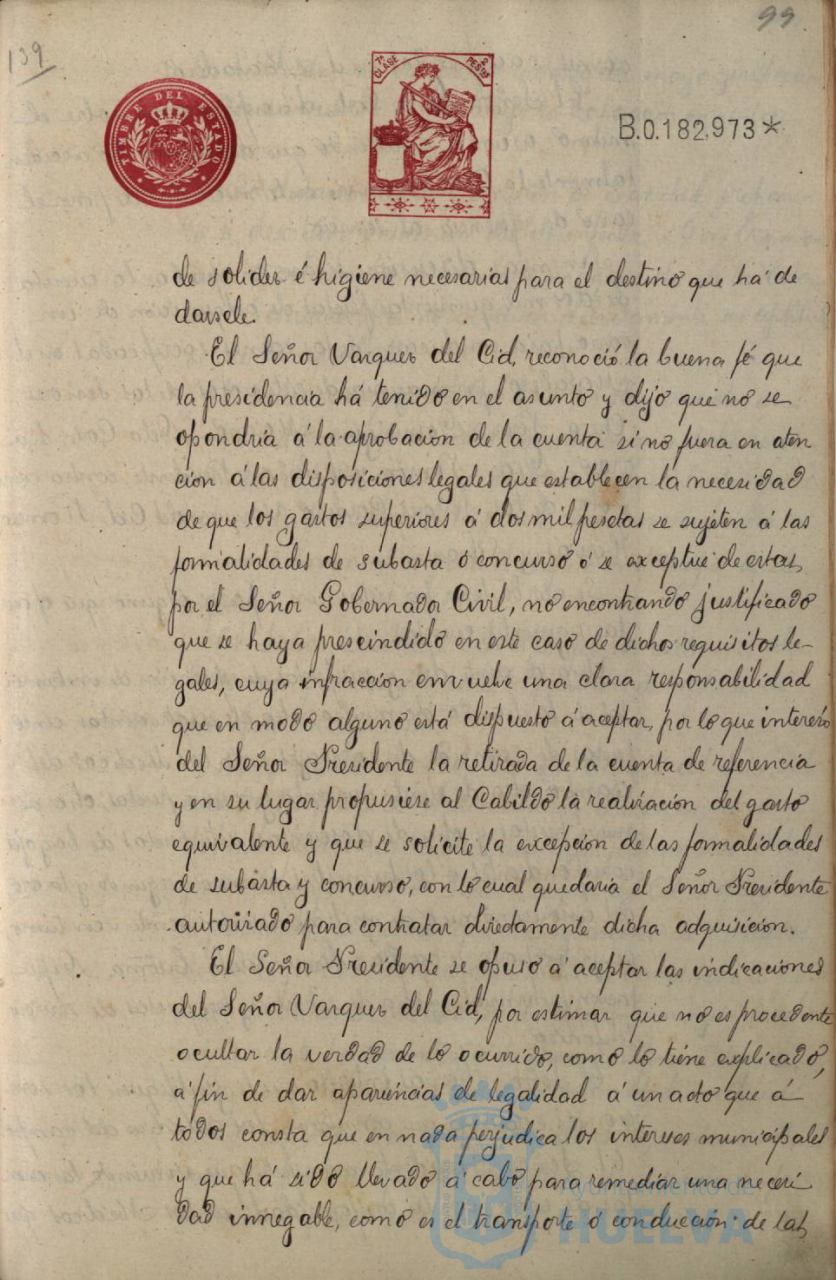 99
139
TIMBRE DEL ESTADO
7ª CLASE 2 PESETAS
B.0.182,973*
de solidez é higiene necesarias para el destino que há de
darsele.
El Señor Vazquez del Cid, reconoció la buena fé que
la presidencia há tenido en el asunto y dijo que no se
opondría á la aprobacion de la cuenta si no fuera en aten
cion á las disposiciones legales que establecen la necesidad
de que los gastos superiores á dos mil pesetas se sujeten á las
formalidades de subasta ó concurso ó se exceptue de estas,
por el Señor Gobernador Civil, no encontrando justificado
que se haya prescindido en este caso de dichos requisitos le-
gales, cuya infraccion envuelve una clara responsabilidad
que en modo alguno está dispuesto á aceptar, por lo que interesó
del Señor Presidente la retirada de la cuenta de referencia
y en su lugar propusiese al Cabildo la realizacion del gasto
equivalente y que se solicite la excepcion de las formalidades
de subasta y concurso, con lo cual quedaria el Señor Presidente
autorizado para contratar directamente dicha adquisicion.
El Señor Presidente se opuso á aceptar las indicaciones
del Señor Vazquez del Cid, por estimar que no es procedente
ocultar la verdad de lo ocurrido, como lo tiene explicado,
á fin de dar apariencias de legalidad á un acto que á
todos consta que en nada perjudica los intereses municipales
y que há sido llevado á cabo para remediar una necesi
dad innegable, como es el transporte ó conducción de las
HUELVA